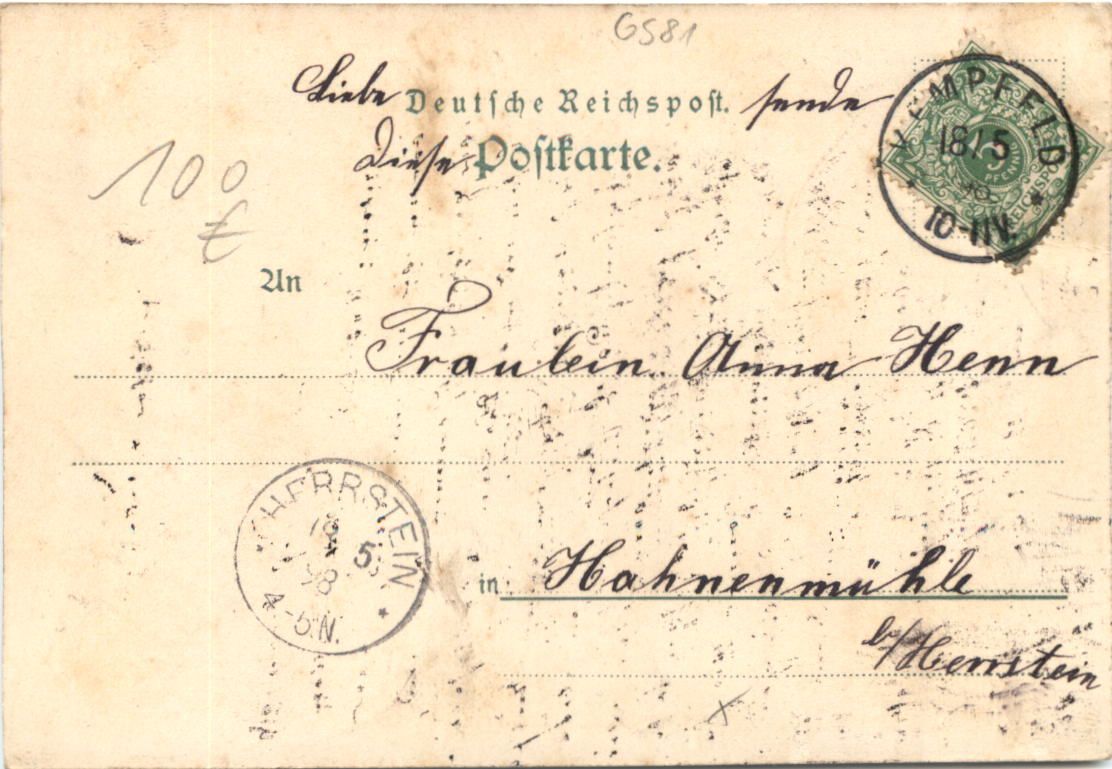 GS81
Liebe Deutsche Reichspost. sende
Diese Postkarte.
KEMPFELD
18/5
98
10-11V.
PFENNIG
REICHSPOST
100
€
An
Fräulein Anna Henn
HERRSTEIN
18 5
98
4-5N.
in Hahnenmühle
b/Herrstein